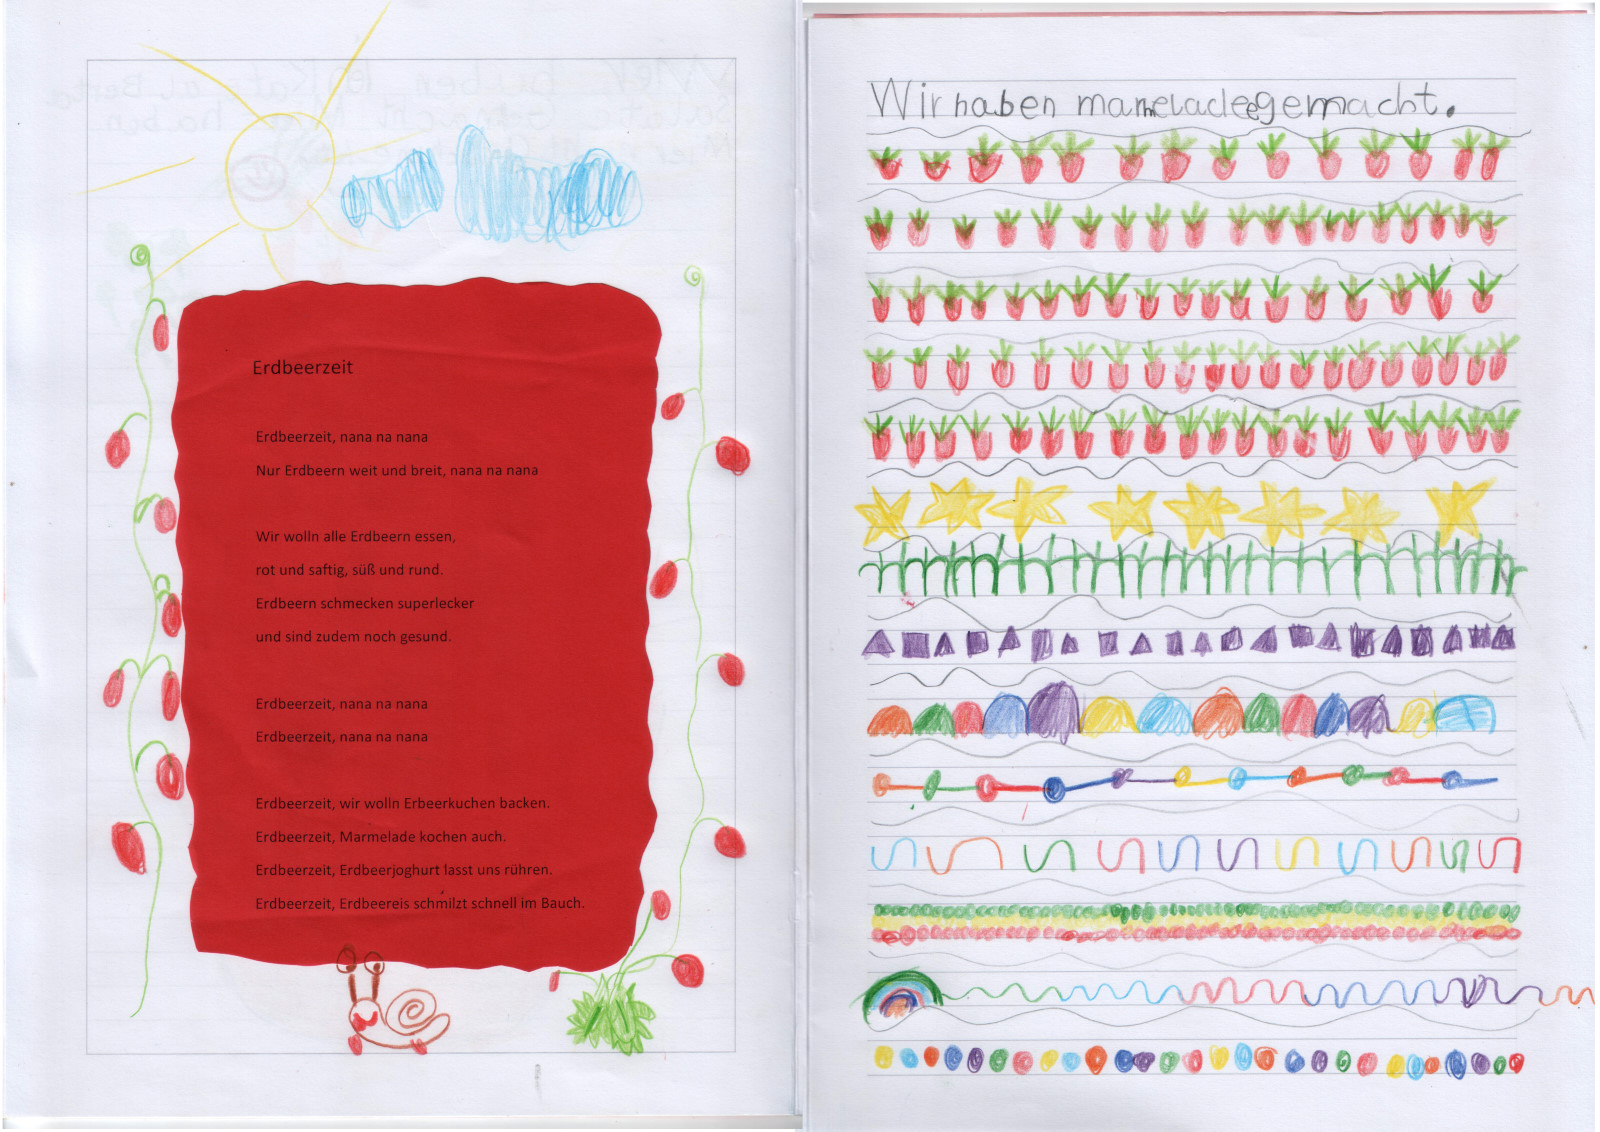 Erdbeerzeit
Erdbeerzeit, nana na nana
Nur Erdbeern weit und breit, nana na nana
Wir wolln alle Erdbeern essen,
rot und saftig, süß und rund.
Erdbeern schmecken superlecker
und sind zudem noch gesund.
Erdbeerzeit, nana na nana
Erdbeerzeit, nana na nana
Erdbeerzeit, wir wolln Erbeerkuchen backen.
Erdbeerzeit, Marmelade kochen auch.
Erdbeerzeit, Erdbeerjoghurt lasst uns rühren.
Erdbeerzeit, Erdbeereis schmilzt schnell im Bauch.
Wir haben marmelade gemacht.